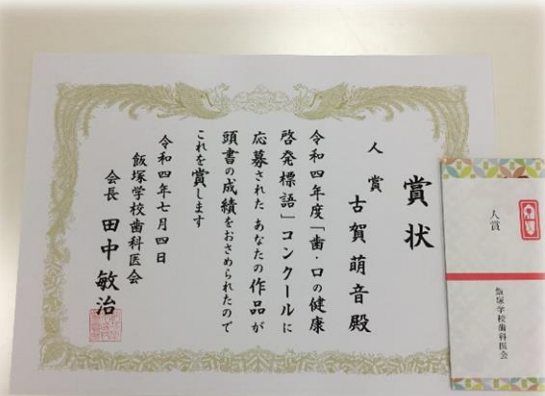 賞状
人賞
古賀萌音殿
令和四年度「歯・口の健康
啓発標語」コンクールに
応募された あなたの作品が
頭書の成績をおさめられたので
これを賞します
令和四年七月四日
飯塚学校歯科医会
会長 田中敏治
人賞
飯塚学校歯科医会